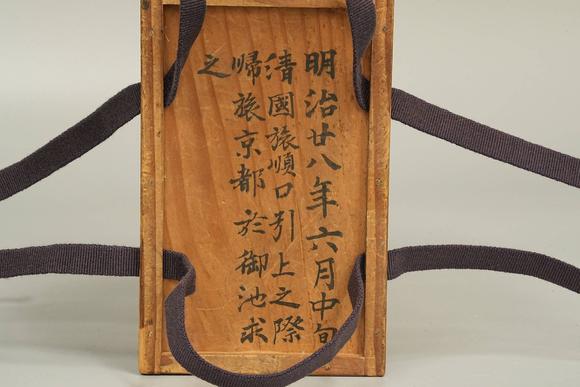 明治廿八年六月中旬
清國旅順口引上之際
帰旅京都於御池求
之